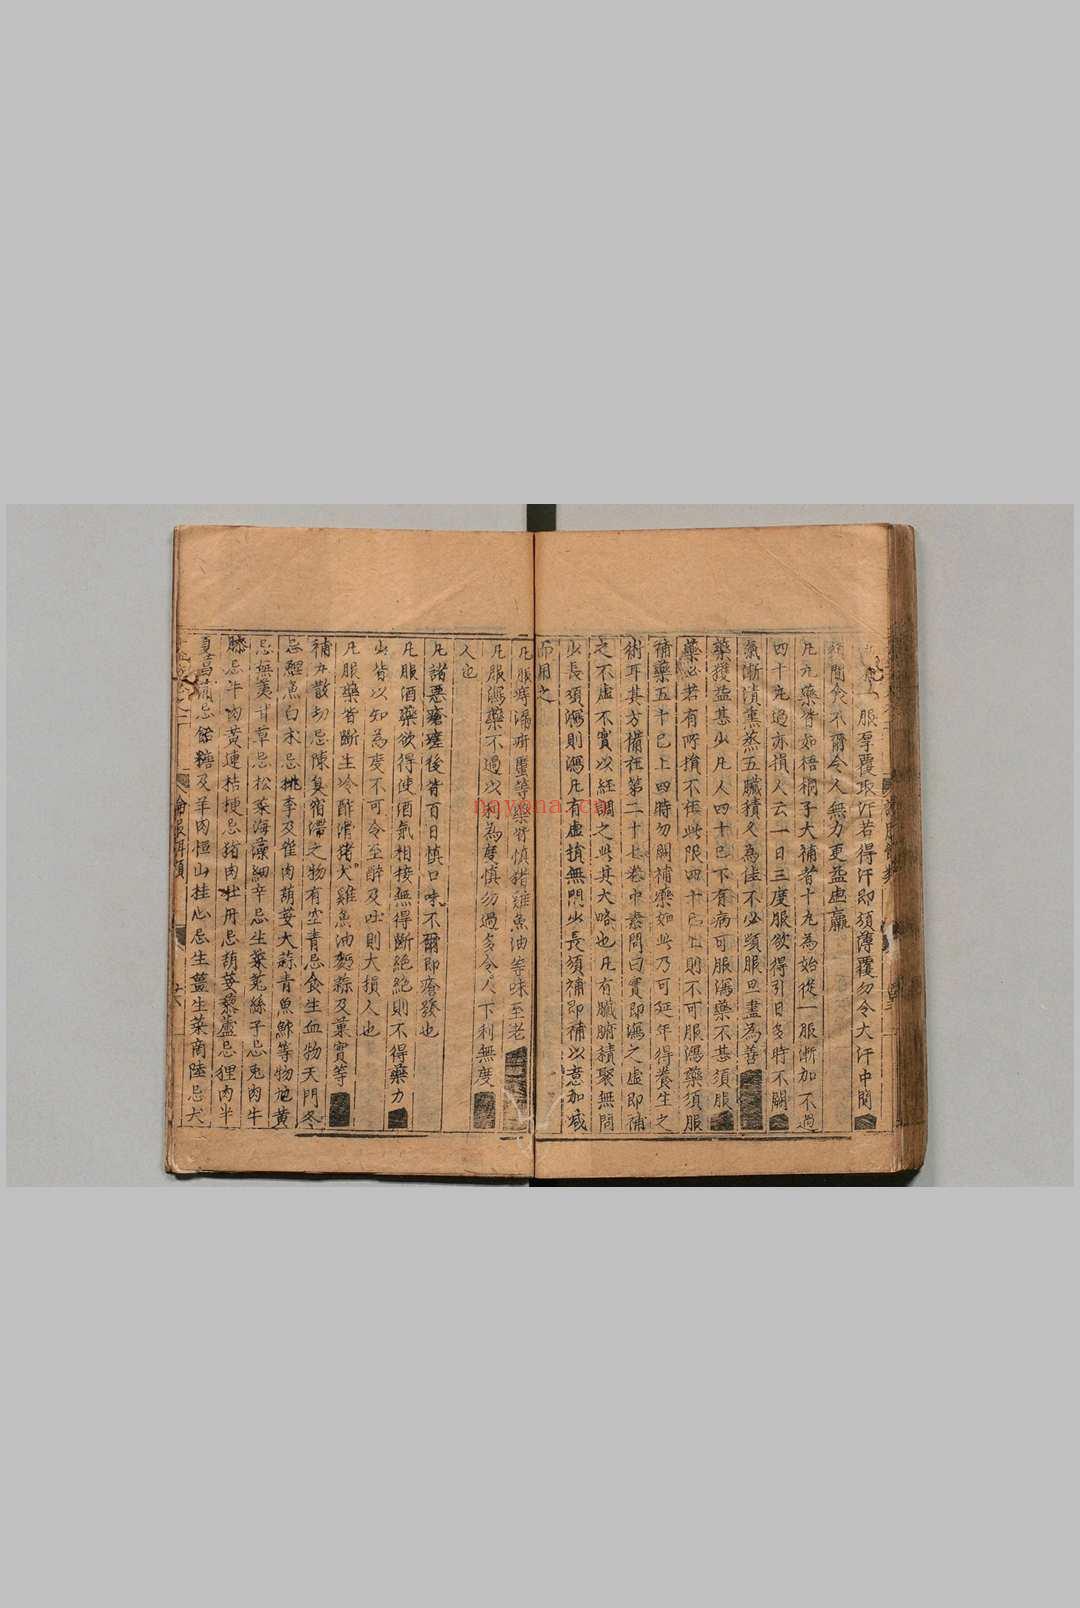 服厚覆取汗若得汗即須薄覆勿令大汗中間
間食不爾令人無力更益虛羸
凡丸藥皆如梧桐子大補者十丸為始從一服漸加不過
四十丸過亦損人云一日三度服欲得引日多時不闕
氣漸漬熏蒸五臟積久為佳不必頓服早盡為善
藥獲益甚少凡人四十已下有病可服瀉藥不甚須服
藥必若有所損不在此限四十已上則不可服瀉藥須服
補藥五十已上四時勿闕補藥如此乃可延年得養生之
術耳其方備在第二十七卷中素問曰實即瀉之虛即補
之不虛不實以經調之此其大略也凡有臟腑積聚無問
少長須瀉則瀉凡有虛損無問少長須補即補以意加減
而用之
凡服痔漏疳䘌等藥皆慎猪雞魚油等味至老
凡服瀉藥不過以利為度慎勿過多令人下利無度
人也
凡諸惡瘡瘥後皆百日慎口味不爾即瘡發也
凡服酒藥欲得使酒氣相接無得斷絕絕則不得藥力
少皆以知為度不可令至醉及吐則大損人也
凡服藥皆斷生冷酢滑猪犬雞魚油麵蒜及菓實等
補丸散切忌陳臭宿滯之物有空青忌食生血物天門冬
忌鯉魚白朮忌桃李及雀肉葫荽大蒜青魚鮓等物地黃
忌蕪荑甘草忌菘菜海藻細辛忌生菜菟絲子忌兎肉牛
膝忌牛肉黃連桔梗忌猪肉牡丹忌葫荽藜蘆忌狸肉半
夏菖蒲忌飴糖及羊肉恒山桂心忌生蔥生菜商陸忌犬
論服餌類
nayona.cn